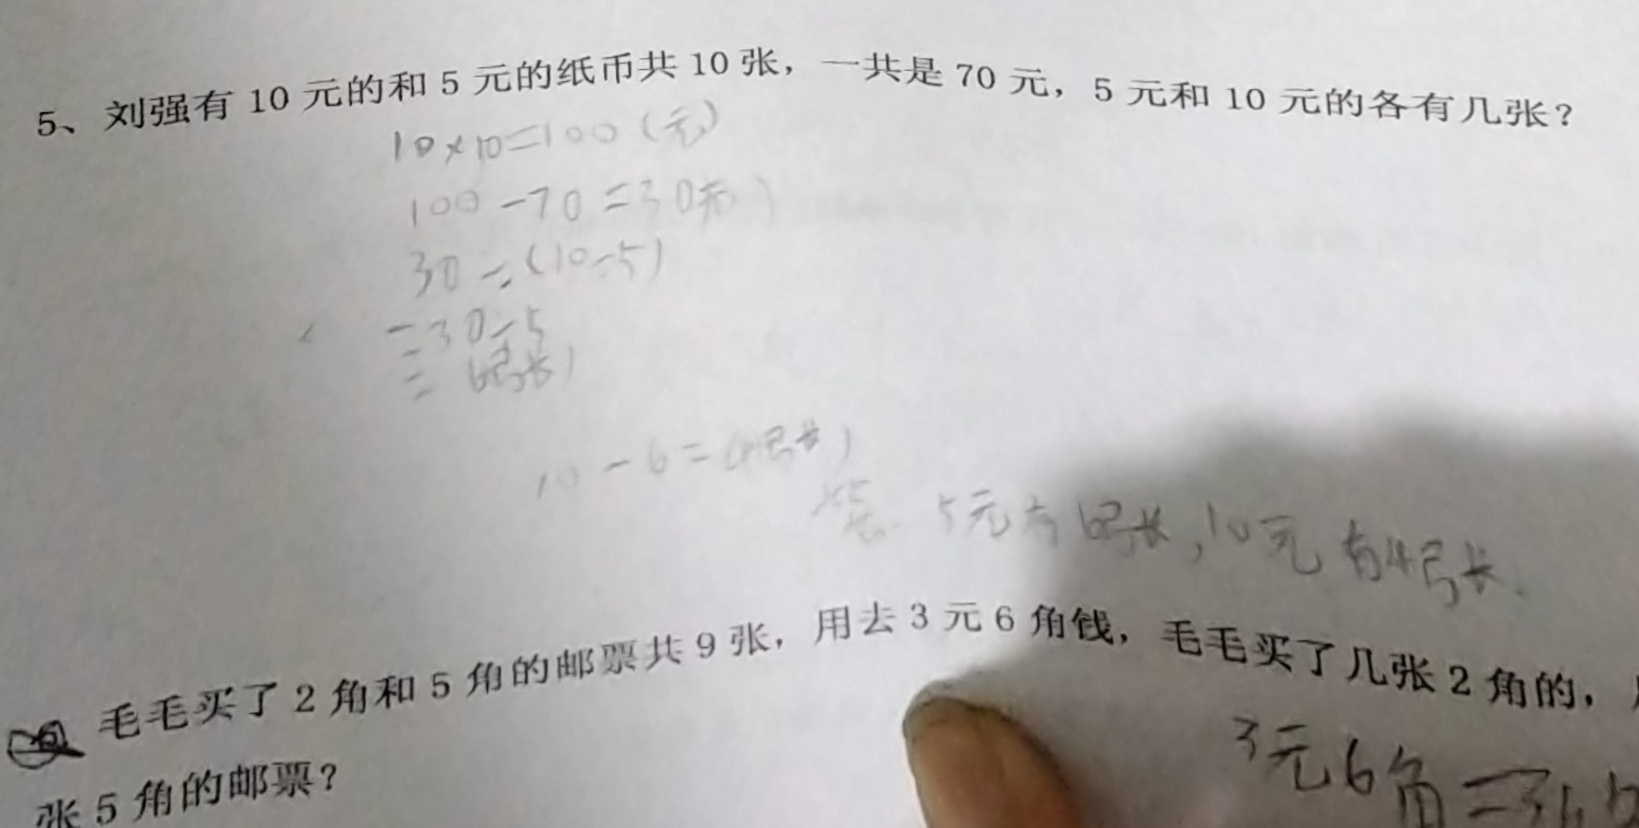 5、刘强有 10 元的和 5 元的纸币共 10 张，一共是 70 元，5 元和 10 元的各有几张？
10×10=100(元)
100-70=30元)
30÷(10-5)
=30÷5
=6张)
10-6=4张)
答 5元有6张,10元有4张.
毛毛买了 2 角和 5 角的邮票共 9 张，用去 3 元 6 角钱，毛毛买了几张 2 角的，
张 5 角的邮票？
3元6角=36